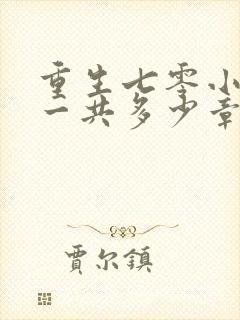 重生七零小
一共多少章
贾尔镇